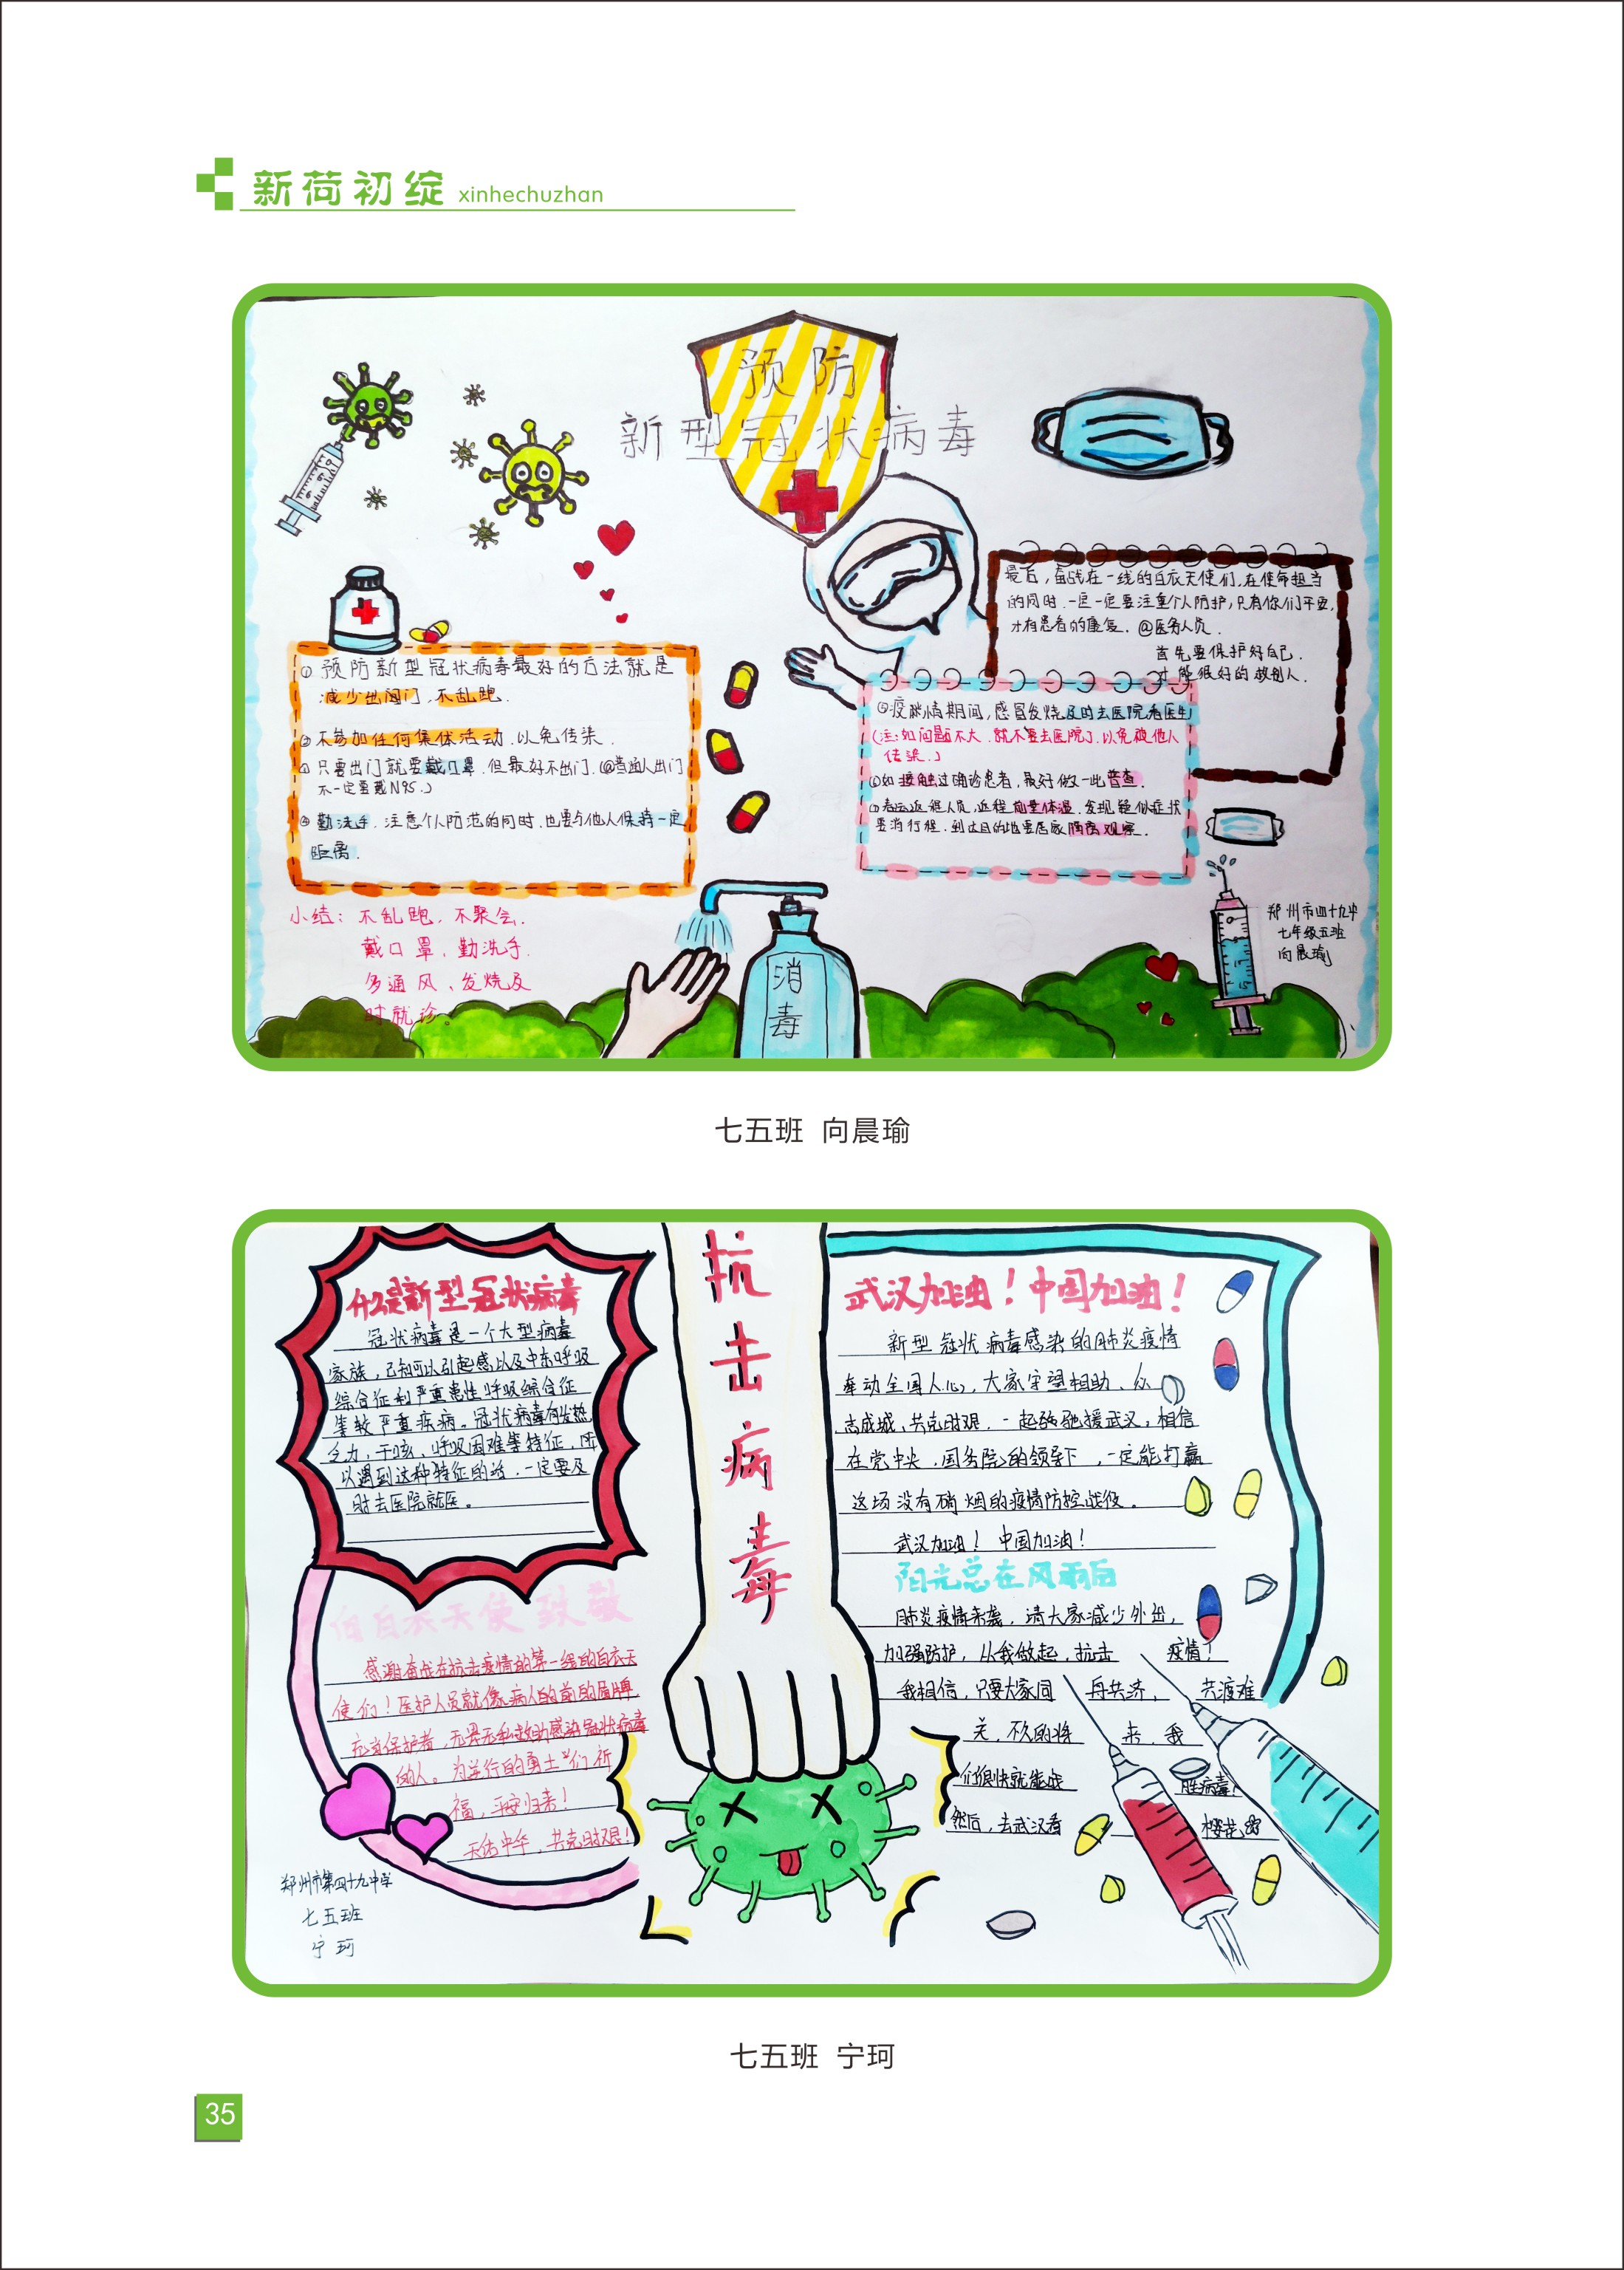 新荷初绽 xinhechuzhan
预防
新型冠状病毒
①预防新型冠状病毒最好的方法就是
减少出门,不乱跑.
②不参加任何集体活动.以免传染.
③只要出门就要戴口罩.但最好不出门.(@普通人出门
不一定要戴N95.)
④勤洗手.注意个人防范的同时.也要与他人保持一定
距离.
小结:不乱跑.不聚会.
戴口罩、勤洗手.
多通风、发烧及
时就诊。
最后,奋战在一线的白衣天使们,在使命担当
的同时.一定一定要注重个人防护,只有你们平安,
才有患者的康复.@医务人员.
首先要保护好自己.
才能很好的救别人.
疫情期间,感冒发烧及时去医院看医生
(注:如问题不大.就不要去医院了.以免被他人
传染.)
⑥如接触过确诊患者,最好做一些普查.
⑦春运返程人员,返程前量体温.发现疑似症状
要消行程.到达目的地要居家隔离观察.
消
毒
郑州市四十九中
七年级五班
向晨瑜
七五班 向晨瑜
什么是新型冠状病毒
冠状病毒是一个大型病毒
家族,已知可以引起感以及中东呼吸
综合征和严重急性呼吸综合征
等较严重疾病。冠状病毒有发热
乏力,干咳、呼吸困难等特征,所
以遇到这种特征的话.一定要及
时去医院就医。
向白衣天使致敬
感谢奋战在抗击疫情的第一线的白衣天
使们!医护人员就像病人的前的盾牌
充当保护者,无畏无私救助感染冠状病毒
的人。为逆行的勇士们祈
福,平安归来!
天佑中华,共克时艰!
郑州市第四十九中学
七五班
宁珂
抗
击
病
毒
武汉加油!中国加油!
新型冠状病毒感染的肺炎疫情
牵动全国人心,大家守望相助、众
志成城、共克时艰.一起驰援武汉,相信
在党中央.国务院的领导下,一定能打赢
这场没有硝烟的疫情防控战役。
武汉加油!中国加油!
阳光总在风雨后
肺炎疫情来袭,请大家减少外出,
加强防护,从我做起,抗击 疫情!
我相信,只要大家同 舟共济, 共渡难
关,不久的将 来,我
们很快就能战 胜病毒!
然后,去武汉看 樱花
七五班 宁珂
35